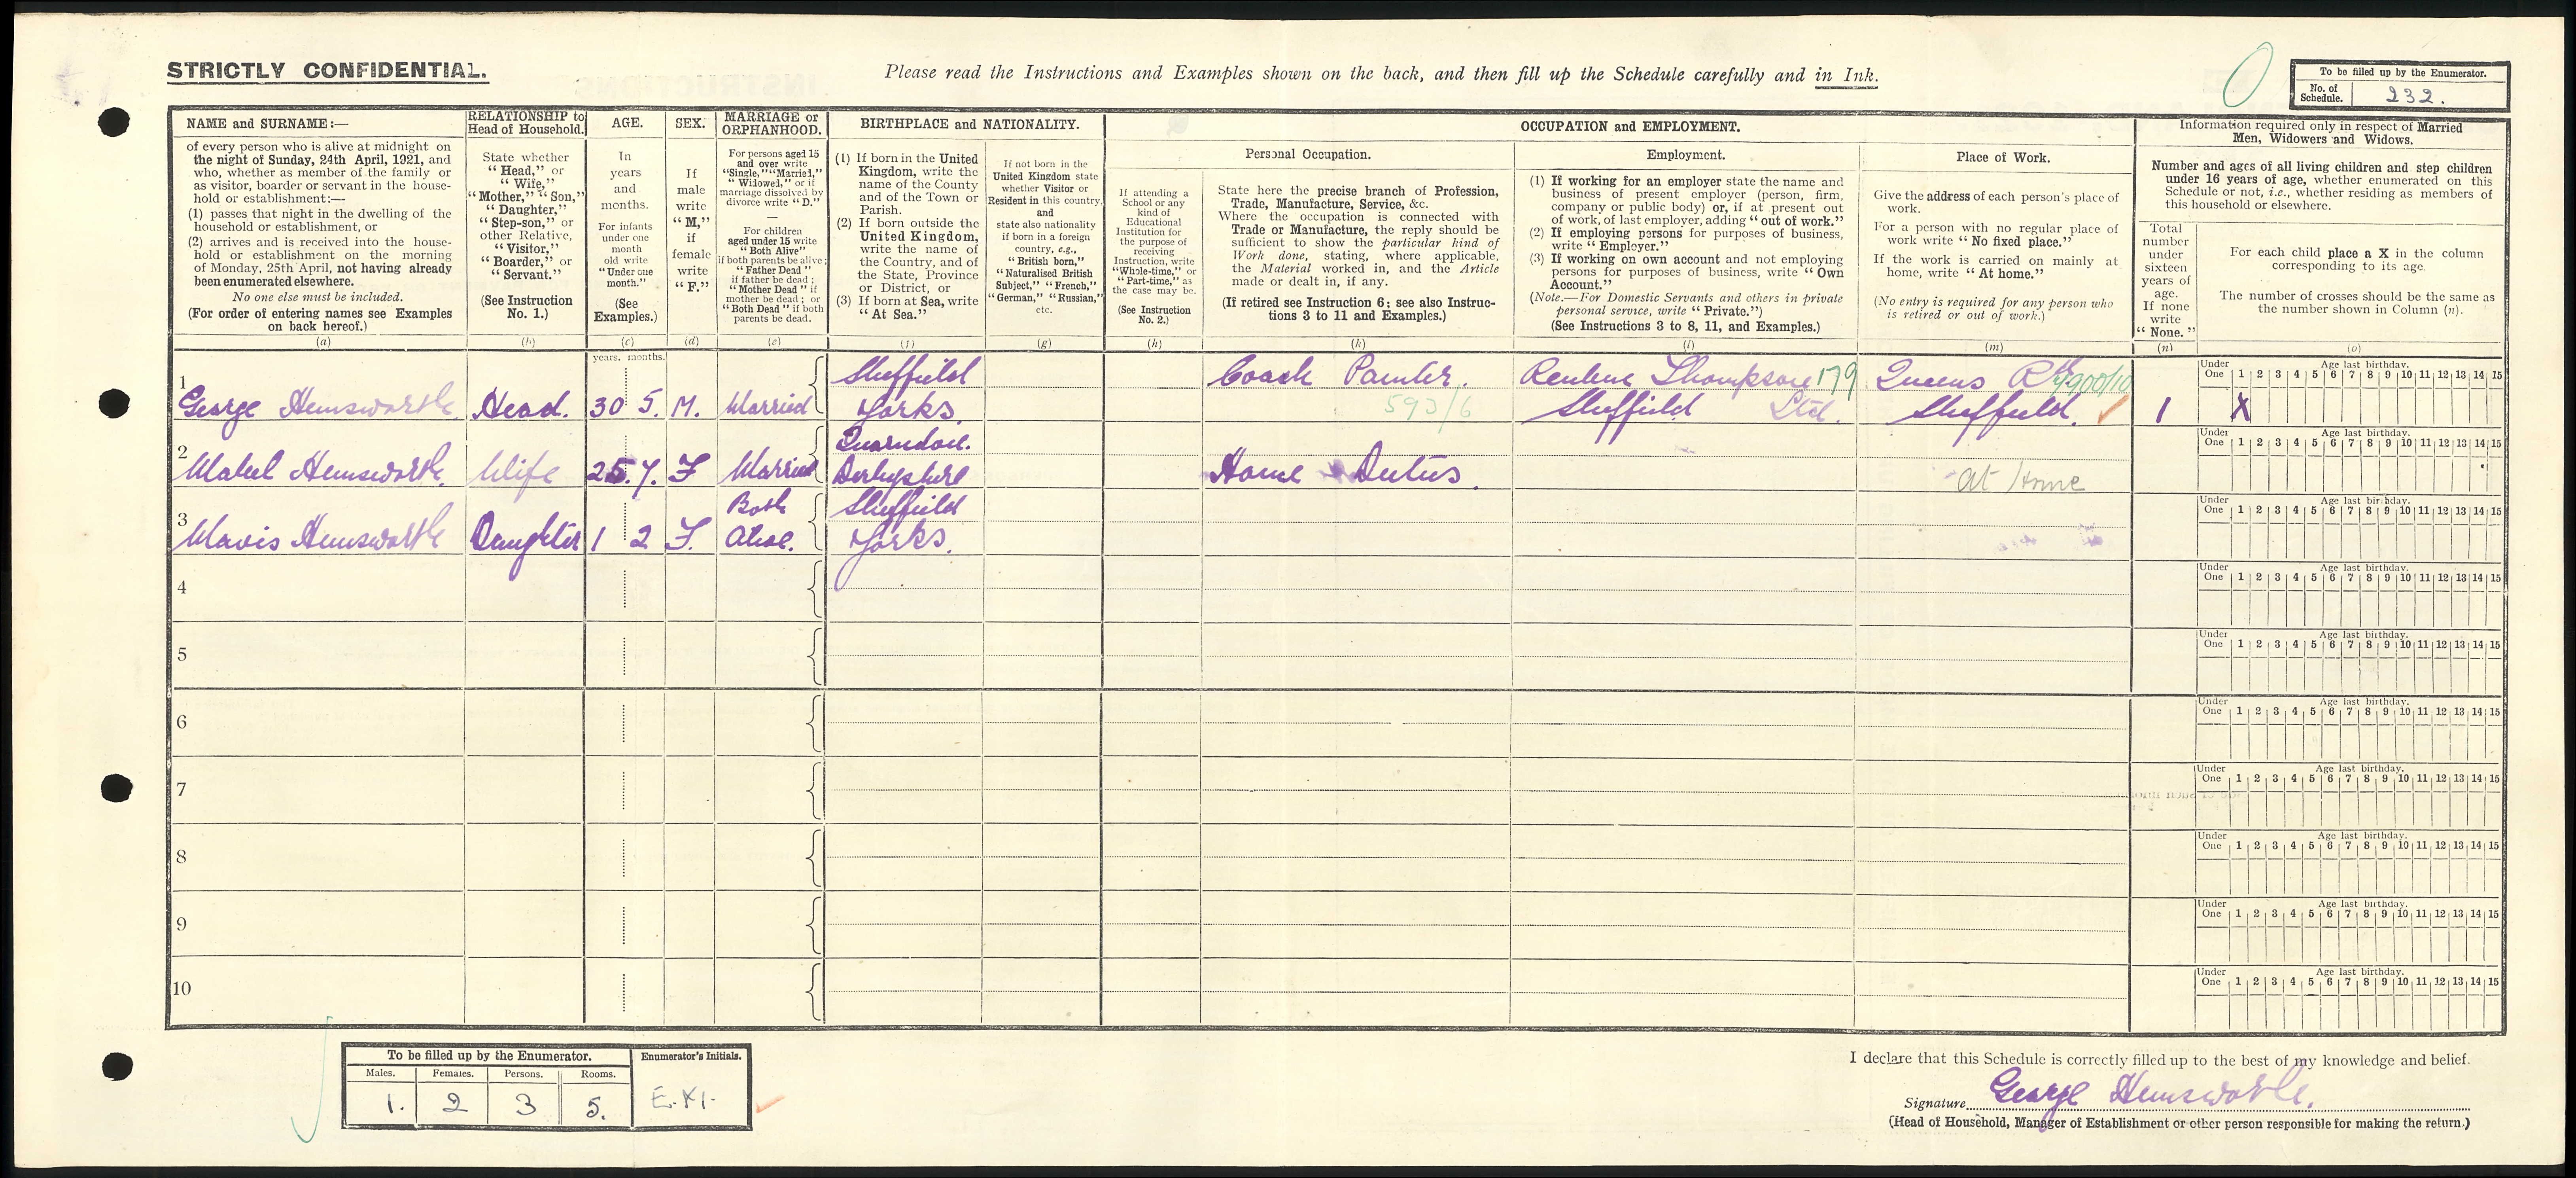 STRICTLY CONFIDENTIAL.
Please read the Instructions and Examples shown on the back, and then fill up the Schedule carefully and in Ink.
To be filled up by the Enumerator.
No. of Schedule. 232.
NAME and SURNAME:—
of every person who is alive at midnight on
the night of Sunday, 24th April, 1921, and
who, whether as member of the family or
as visitor, boarder or servant in the house-
hold or establishment:—
(1) passes that night in the dwelling of the
household or establishment, or
(2) arrives and is received into the house-
hold or establishment on the morning
of Monday, 25th April, not having already
been enumerated elsewhere.
No one else must be included.
(For order of entering names see Examples
on back hereof.)
(a)
RELATIONSHIP to
Head of Household.
State whether
"Head," or
"Wife,"
"Mother," "Son,"
"Daughter,"
"Step-son," or
other Relative,
"Visitor,"
"Boarder," or
"Servant."
(See Instruction
No. 1.)
(b)
AGE.
In
years
and
months.
For infants
under one
month
old write
"Under one
month."
(See
Examples.)
(c)
SEX.
If
male
write
"M,"
if
female
write
"F."
(d)
MARRIAGE or
ORPHANHOOD.
For persons aged 15
and over write
"Single," "Married,"
"Widowed," or if
marriage dissolved by
divorce write "D."
—
For children
aged under 15 write
"Both Alive"
if both parents be alive;
"Father Dead"
if father be dead;
"Mother Dead" if
mother be dead; or
"Both Dead" if both
parents be dead.
(e)
BIRTHPLACE and NATIONALITY.
(1) If born in the United
Kingdom, write the
name of the County
and of the Town or
Parish.
(2) If born outside the
United Kingdom,
write the name of
the Country, and of
the State, Province
or District, or
(3) If born at Sea, write
"At Sea."
(f)
If not born in the
United Kingdom state
whether Visitor or
Resident in this country,
and
state also nationality
if born in a foreign
country, e.g.,
"British born,"
"Naturalised British
Subject," "French,"
"German," "Russian,"
etc.
(g)
OCCUPATION and EMPLOYMENT.
Personal Occupation.
If attending a
School or any
kind of
Educational
Institution for
the purpose of
receiving
Instruction, write
"Whole-time," or
"Part-time," as
the case may be.
(See Instruction
No. 2.)
(h)
State here the precise branch of Profession,
Trade, Manufacture, Service, &c.
Where the occupation is connected with
Trade or Manufacture, the reply should be
sufficient to show the particular kind of
Work done, stating, where applicable,
the Material worked in, and the Article
made or dealt in, if any.
(If retired see Instruction 6: see also Instruc-
tions 3 to 11 and Examples.)
(k)
Employment.
(1) If working for an employer state the name and
business of present employer (person, firm,
company or public body) or, if at present out
of work, of last employer, adding "out of work."
(2) If employing persons for purposes of business,
write "Employer."
(3) If working on own account and not employing
persons for purposes of business, write "Own
Account."
(Note.—For Domestic Servants and others in private
personal service, write "Private.")
(See Instructions 3 to 8, 11, and Examples.)
(l)
Place of Work.
Give the address of each person's place of
work.
For a person with no regular place of
work write "No fixed place."
If the work is carried on mainly at
home, write "At home."
(No entry is required for any person who
is retired or out of work.)
(m)
Information required only in respect of Married
Men, Widowers and Widows.
Number and ages of all living children and step children
under 16 years of age, whether enumerated on this
Schedule or not, i.e., whether residing as members of
this household or elsewhere.
Total
number
under
sixteen
years of
age.
If none
write
"None."
(n)
For each child place a X in the column
corresponding to its age.
The number of crosses should be the same as
the number shown in Column (n).
(o)
years. months.
Under One Age last birthday.
1 2 3 4 5 6 7 8 9 10 11 12 13 14 15
1 George Hemsworth Head. 30 5. M. Married Sheffield Yorks. Coach Painter. 593/6 Reuben Thompson 179 Sheffield Ltd. Queens Rd. 900/10 Sheffield. 1 X
Under One Age last birthday.
1 2 3 4 5 6 7 8 9 10 11 12 13 14 15
2 Mabel Hemsworth. Wife 25. 7. F Married Quarndon. Derbyshire Home Duties. At Home
Under One Age last birthday.
1 2 3 4 5 6 7 8 9 10 11 12 13 14 15
3 Mavis Hemsworth Daughter 1 2 F. Both Alive. Sheffield Yorks.
Under One Age last birthday.
1 2 3 4 5 6 7 8 9 10 11 12 13 14 15
4
Under One Age last birthday.
1 2 3 4 5 6 7 8 9 10 11 12 13 14 15
5
Under One Age last birthday.
1 2 3 4 5 6 7 8 9 10 11 12 13 14 15
6
Under One Age last birthday.
1 2 3 4 5 6 7 8 9 10 11 12 13 14 15
7
Under One Age last birthday.
1 2 3 4 5 6 7 8 9 10 11 12 13 14 15
8
Under One Age last birthday.
1 2 3 4 5 6 7 8 9 10 11 12 13 14 15
9
Under One Age last birthday.
1 2 3 4 5 6 7 8 9 10 11 12 13 14 15
10
To be filled up by the Enumerator.
Males. Females. Persons. Rooms.
1. 2 3 5.
Enumerator's Initials.
I declare that this Schedule is correctly filled up to the best of my knowledge and belief.
Signature George Hemsworth.
(Head of Household, Manager of Establishment or other person responsible for making the return.)